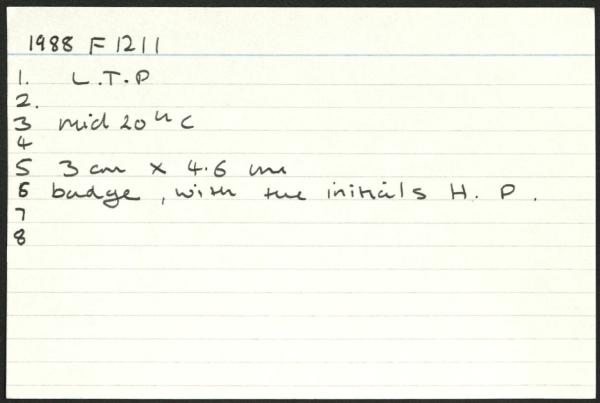 1988 F 1211
1. L.T.P
2.
3 mid 20th C
4
5 3 cm x 4.6 cm
6 badge, with the initials H. P.
7
8